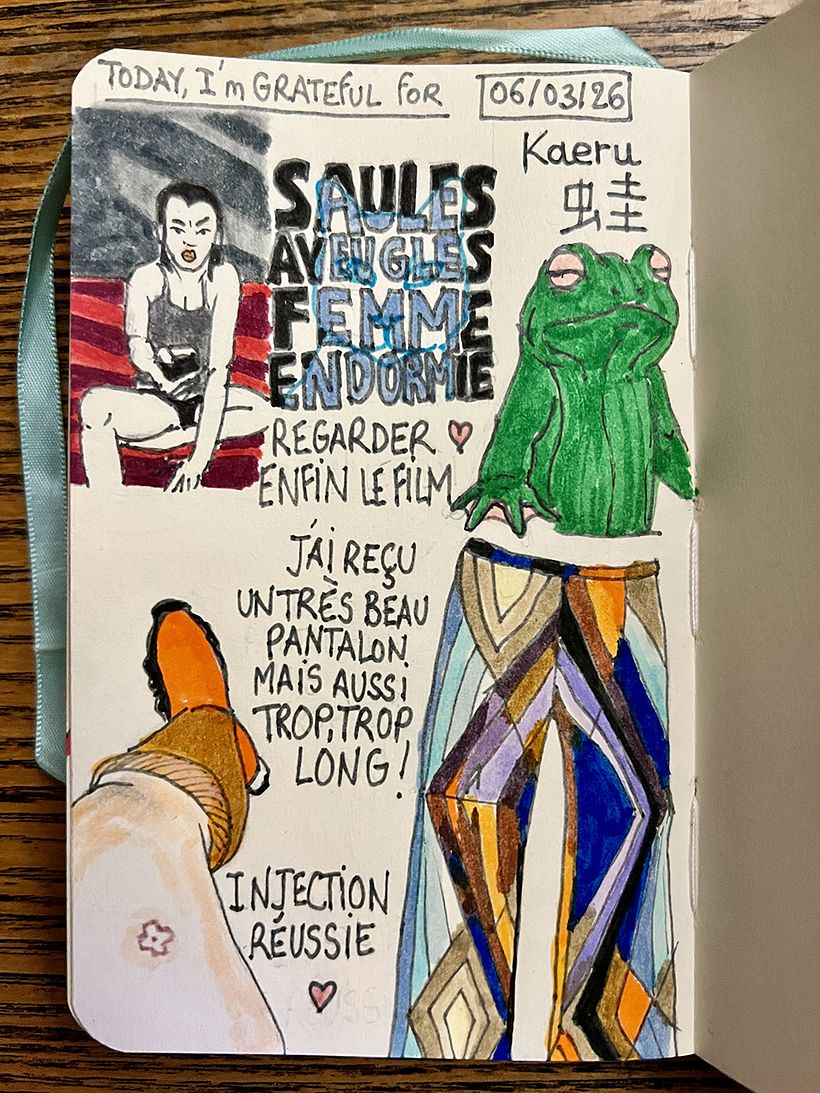 TODAY, I'm GRATEFUL FOR
06/03/26
Kaeru
蛙
SAULES
AVEUGLES
FEMME
ENDORMIE
REGARDER
ENFIN LE FILM
J'AI REÇU
UN TRÈS BEAU
PANTALON
MAIS AUSSI
TROP, TROP
LONG !
INJECTION
RÉUSSIE